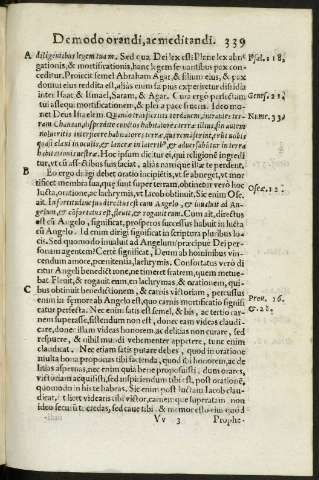 De modo orandi, ac meditandi. 339
A diligentibus legem tuam. Sed quæ Dei lex est? Plane lex abne Psal. 118.
gationis, & mortificationis, hanc legem seruantibus pax con
ceditur. Proiecit semel Abraham Agar, & filium eius, & pax
domui eius reddita est, alias enim sæpius expertus dissidia
inter Isaac & Ismael, Saram, & Agar. Cura ergo perfectam Genes. 21.
tui assequi mortificationem, & plena pace frueris. Ideo mo-
net Deus Israelem: Quando transieritis Iordanem, intrantes ter- Num. 33.
ram Chanaan, disperdite cunctos habitatores terræ illius, sin autem
nolueritis interficere habitatores terræ, qui remanserint, erunt vobis
quasi claui in oculis, & lanceæ in lateribus, & aduersabuntur in terra
habitationis vestræ. Hoc ipsum dicitur ei, qui religionē ingredi
tur, vt cū affectibus suis faciat, alias numquā illæ te perdent.
B Eo ergo dirigi debet oratio incipiētis, vt se abneget, vt mor
tificet membra sua, quæ sunt super terram, obtinebit verò hoc
lucta, oratione, ac lachrymis, vt Iacob obtinuit. Sic enim Ose- Oseæ. 12.
as ait. In fortitudine sua directus est cum Angelo, & inualuit ad An-
gelum, & cōfortatus est, fleuit, & rogauit eum. Cum ait, directus
est cū Angelo, significat, prosperos successus habuit in lucta
cū Angelo. Id enim dirigi significat in scriptura pluribus lo-
cis. Sed quomodo inualuit ad Angelum? præcipue Dei per-
sonam agentem? Certè significat, Deum ab hominibus vin-
cendum amore, pœnitentia, lachrymis. Confortatus verò di
citur Angeli benedictione, ne timeret fratrem, quem metue-
bat. Fleuit, & rogauit eum, en lachrymas, & orationem, qui-
C bus obtinuit benedictionem, & carnis victoriam, percussus Prou. 16.
enim in femore ab Angelo est, quo carnis mortificatio signifi & 28.
catur perfecta. Nec enim satis est semel, & bis, ac tertio car-
nem superasse, sistendum non est, donec eam videas claudi-
care, donec illum videas honorem ac delicias non curare, sed
respuere, & nihil mundi vehementer appetere, tunc enim
claudicat. Nec etiam satis putare debes, quod in oratione
multa bona proponas tibi facienda, quod tibi honorem, ac de
litias aspernas, nec enim quia bene proposuisti, dum orares,
victoriam acquisisti, sed inspiciendum tibi est, post orationē,
quomodo in his te habeas. Sic enim post luctam Iacob clau-
dicat, & licet videaris tibi victor, carnemque superatam non
ideo securus incedas, sed caue tibi, & memor esto eius quod
Vv 3 Prophe-